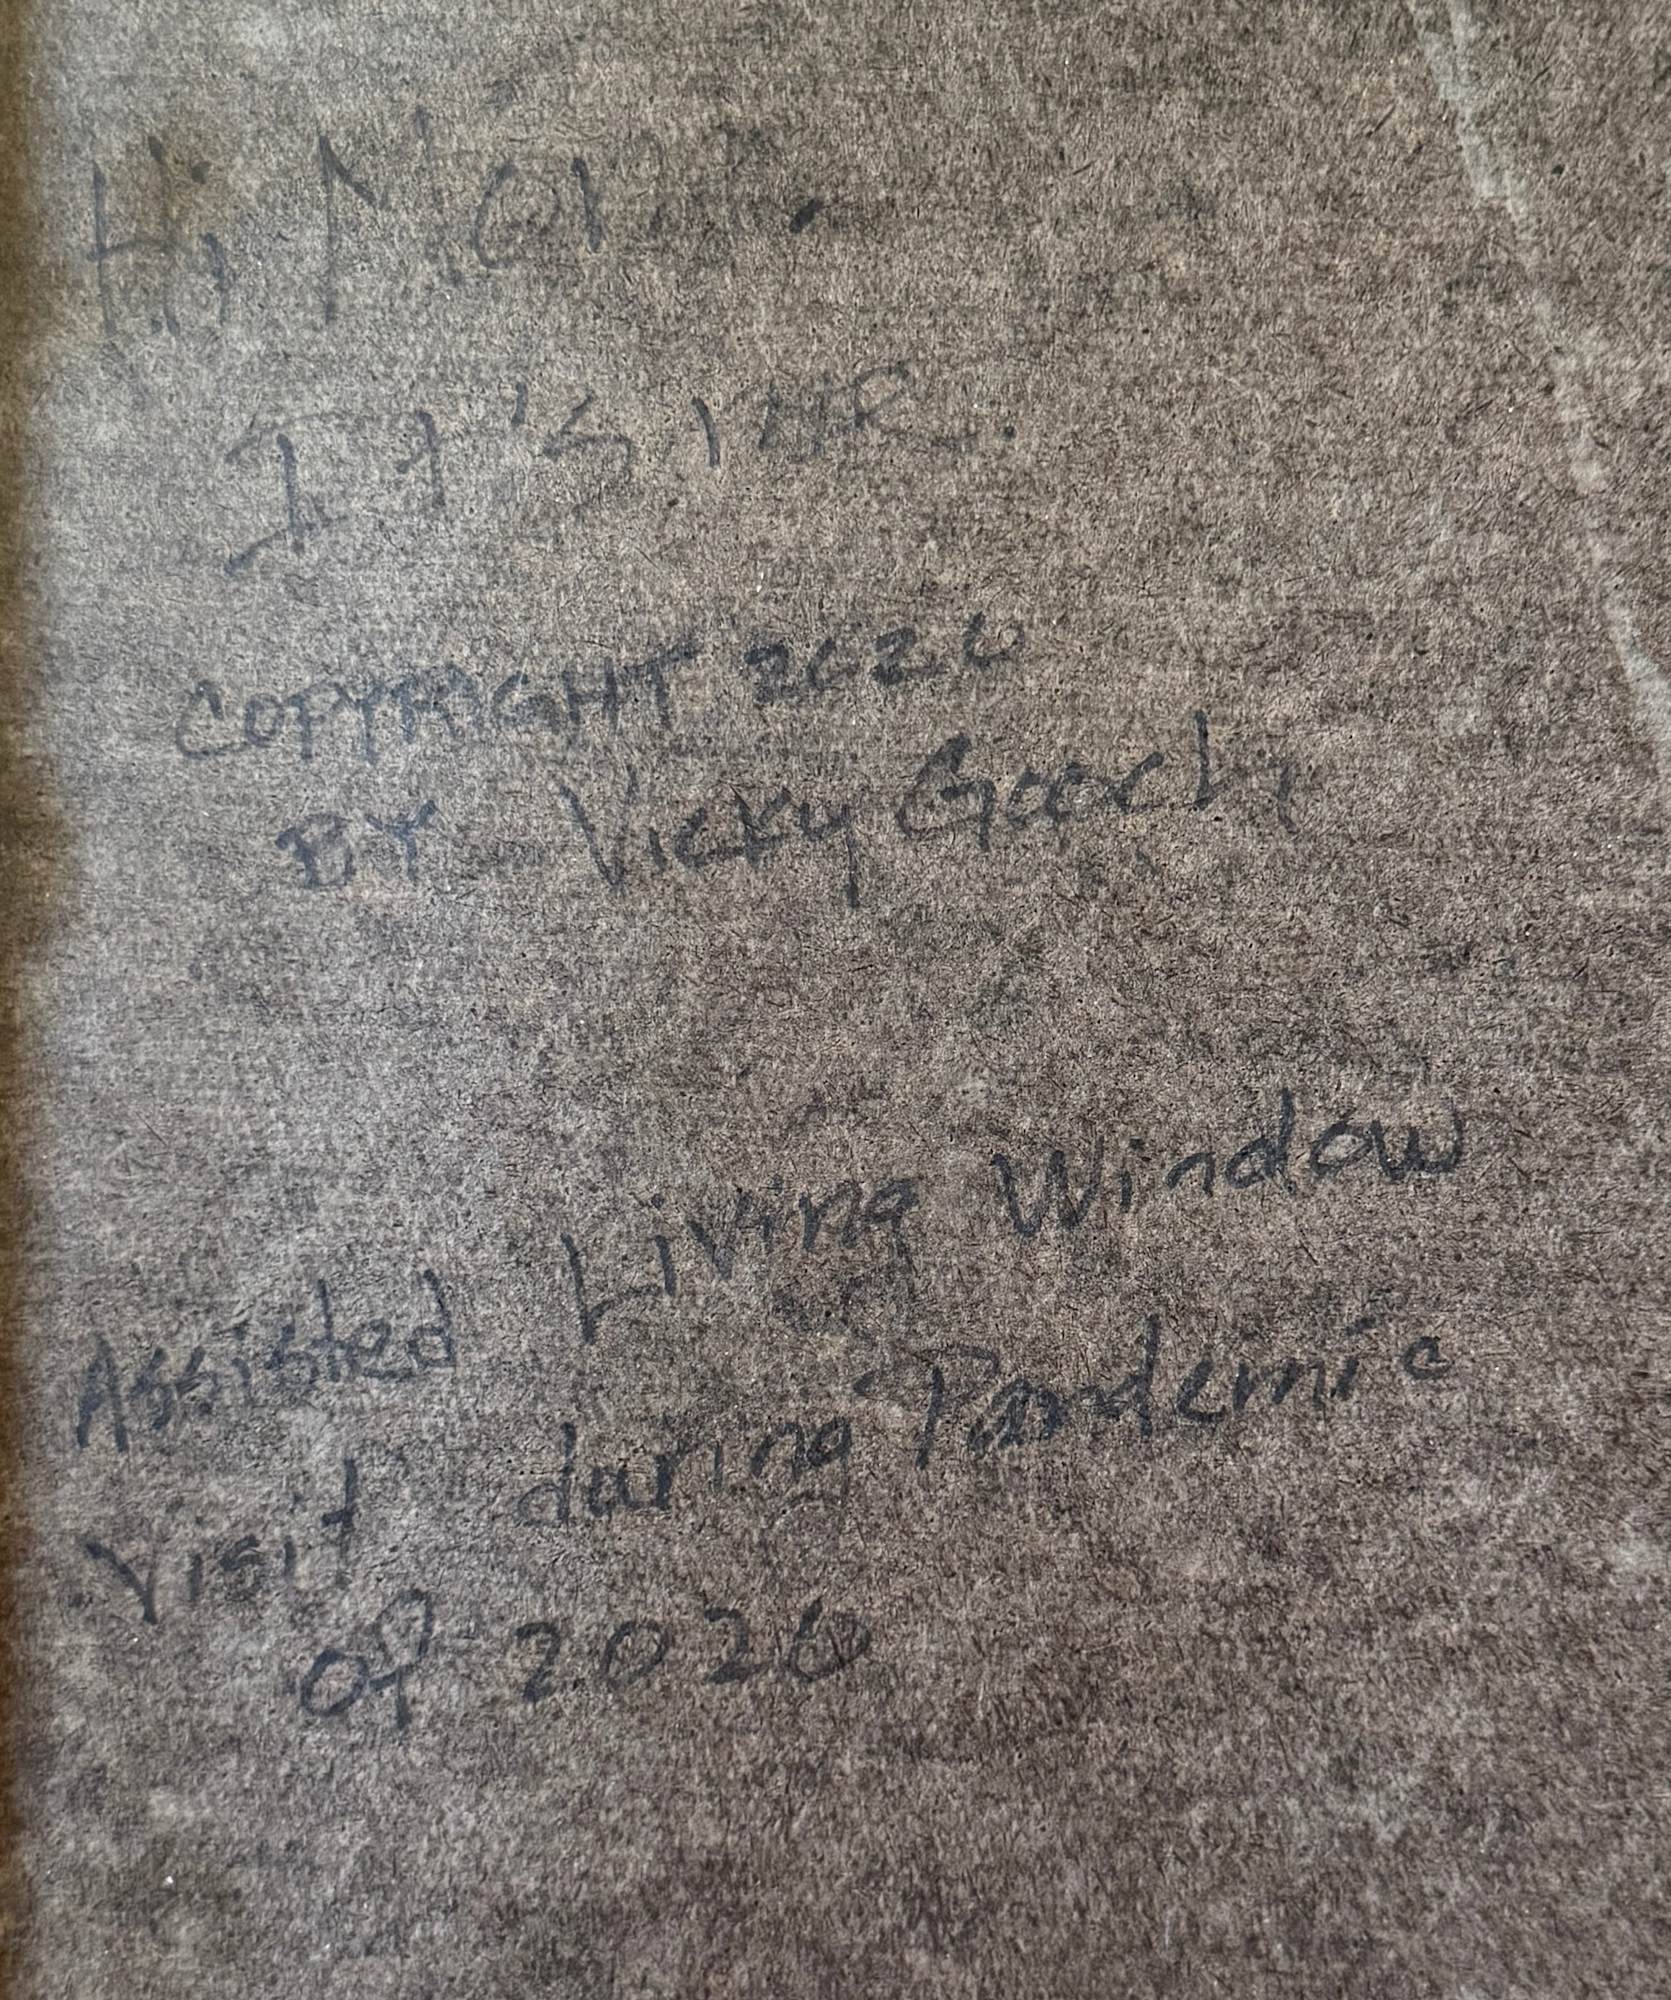 Hi,
It's me.
COPYRIGHT 2020
BY Vicky Gooch
Assisted Living Window
Visit during Pandemic
of 2020